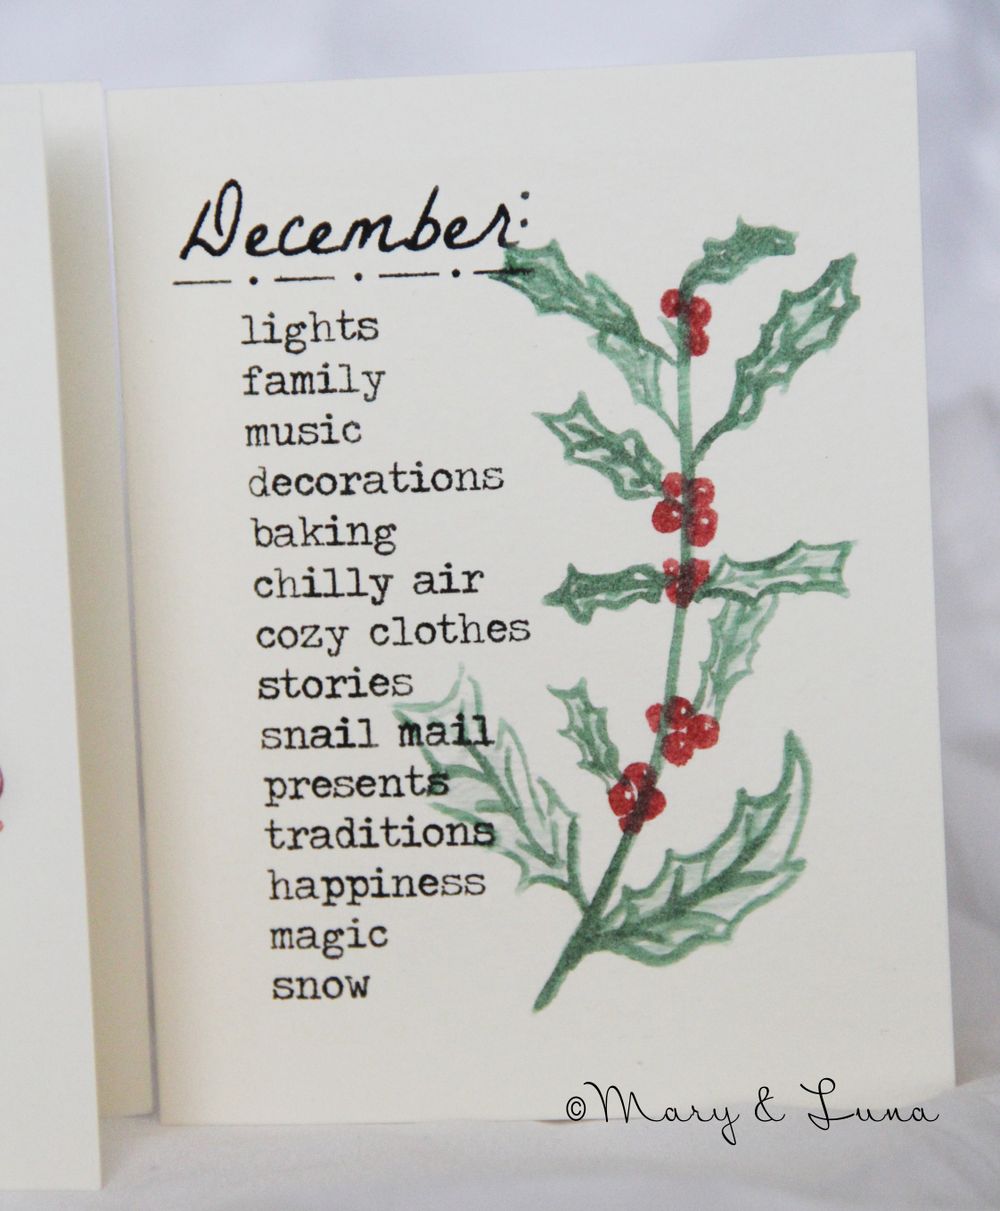 December:
lights
family
music
decorations
baking
chilly air
cozy clothes
stories
snail mail
presents
traditions
happiness
magic
snow
©Mary & Luna